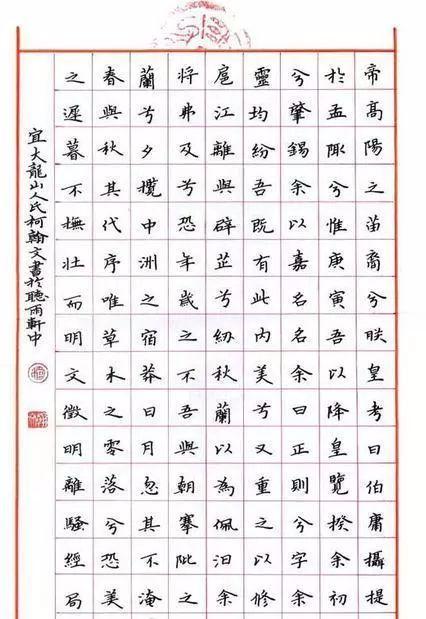 帝高陽之苗裔兮朕皇考曰伯庸攝提
於孟陬兮惟庚寅吾以降皇覽揆余初
兮肇錫余以嘉名名余曰正則兮字余
靈均紛吾既有此內美兮又重之以修
扈江離與辟芷兮紉秋蘭以為佩汨余
將弗及兮恐年歲之不吾與朝搴阰之
蘭兮夕攬中洲之宿莽日月忽其不淹
春與秋其代序唯草木之零落兮恐美
之遲暮不撫壯而明文徵明離騷經局
宜大龍山人氏柯翰文書於聽雨軒中